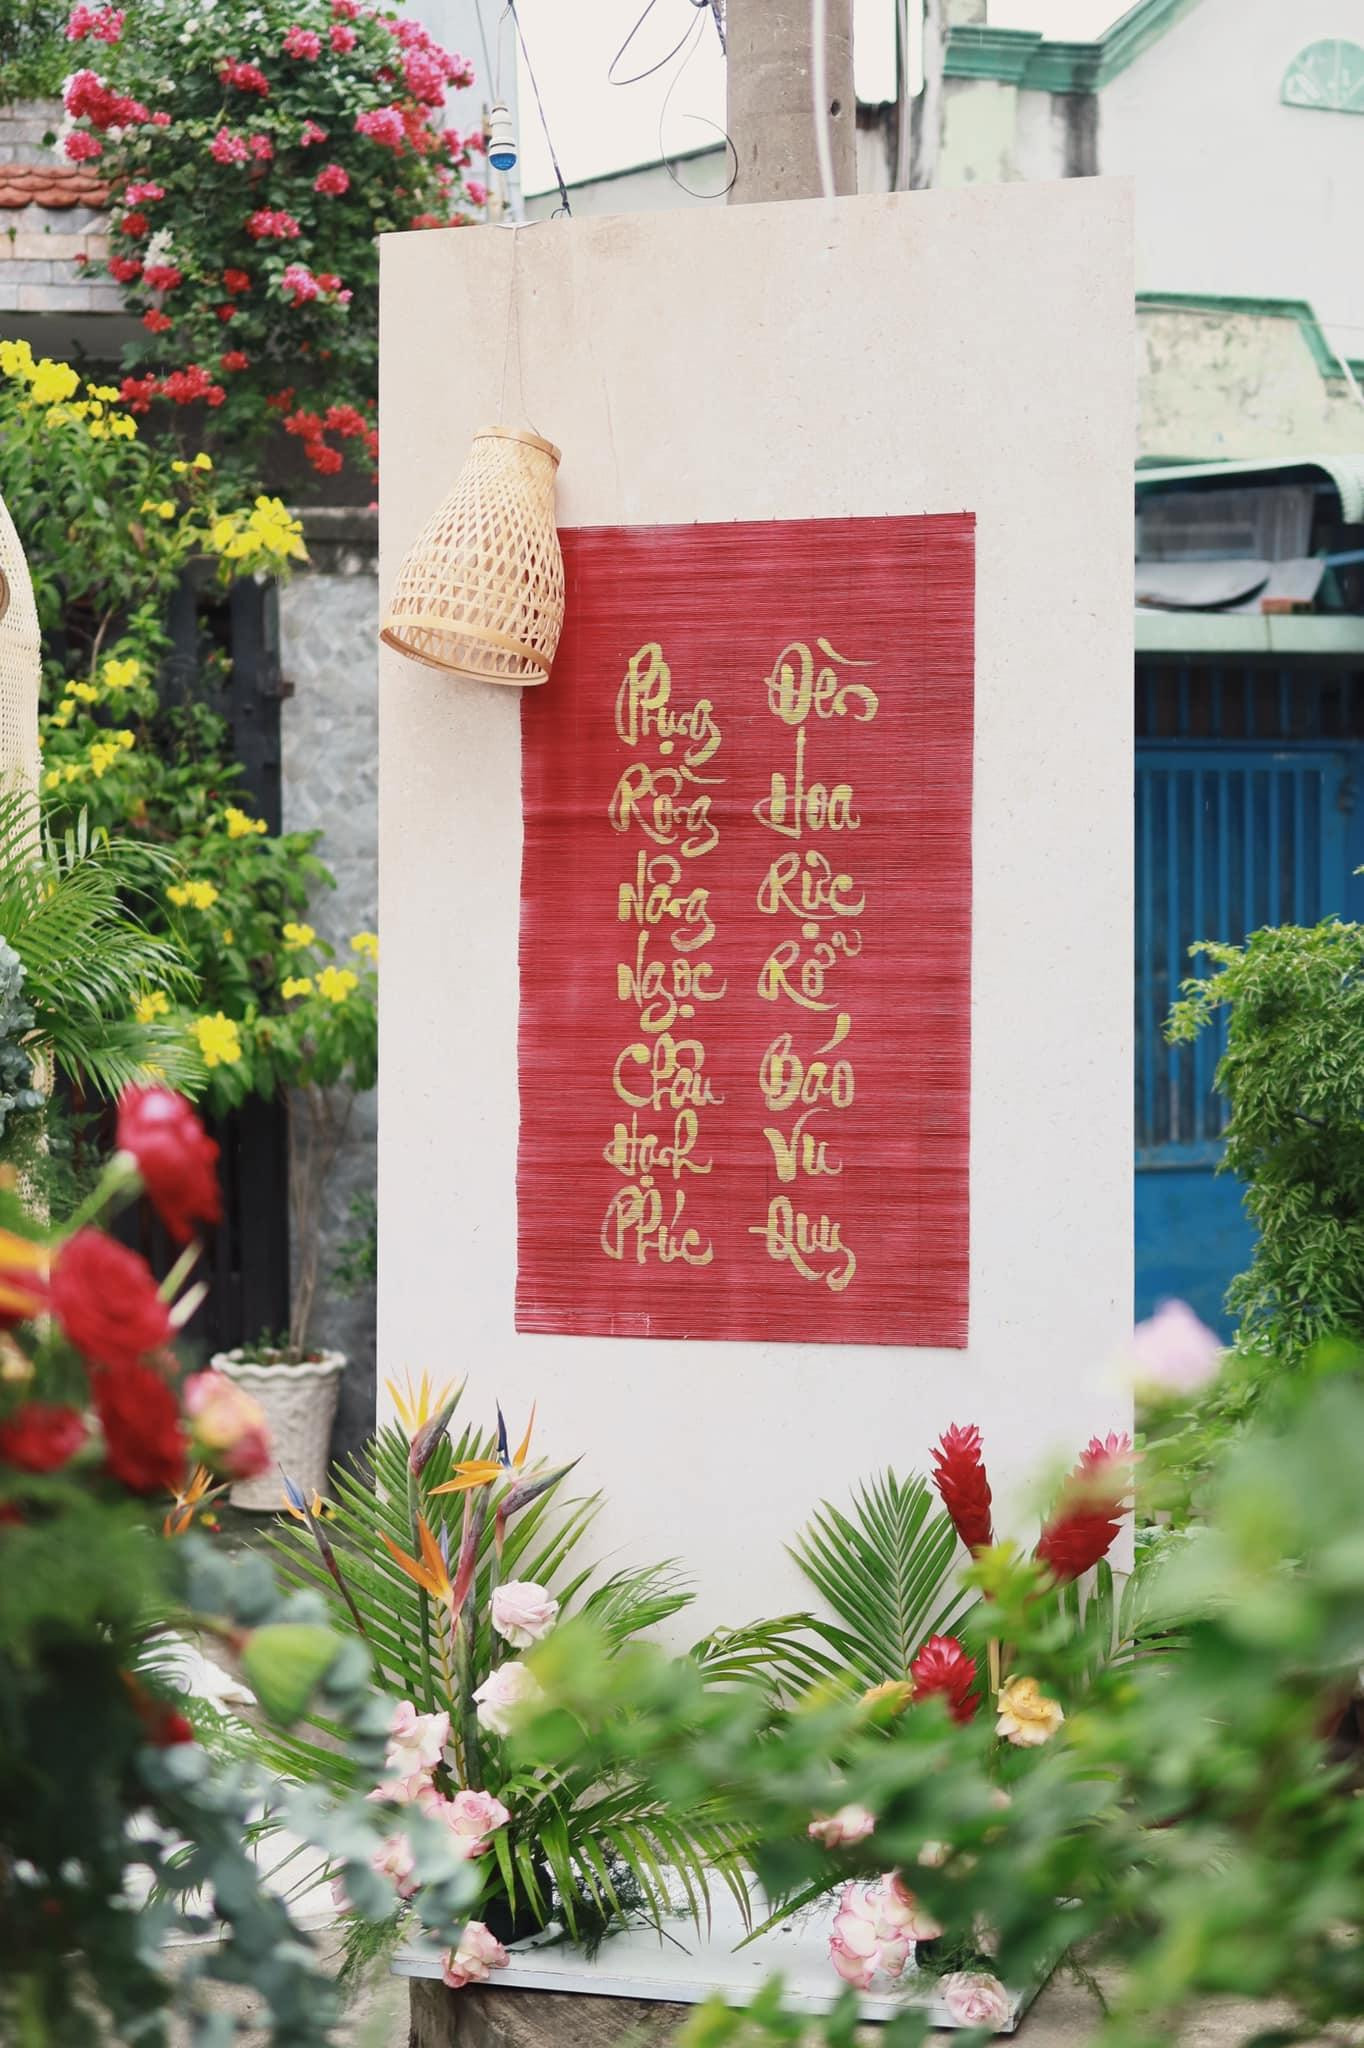 Phụng Rồng Nâng Ngọc Châu Hạnh Phúc
Đèn Hoa Rực Rỡ Báo Vu Quy